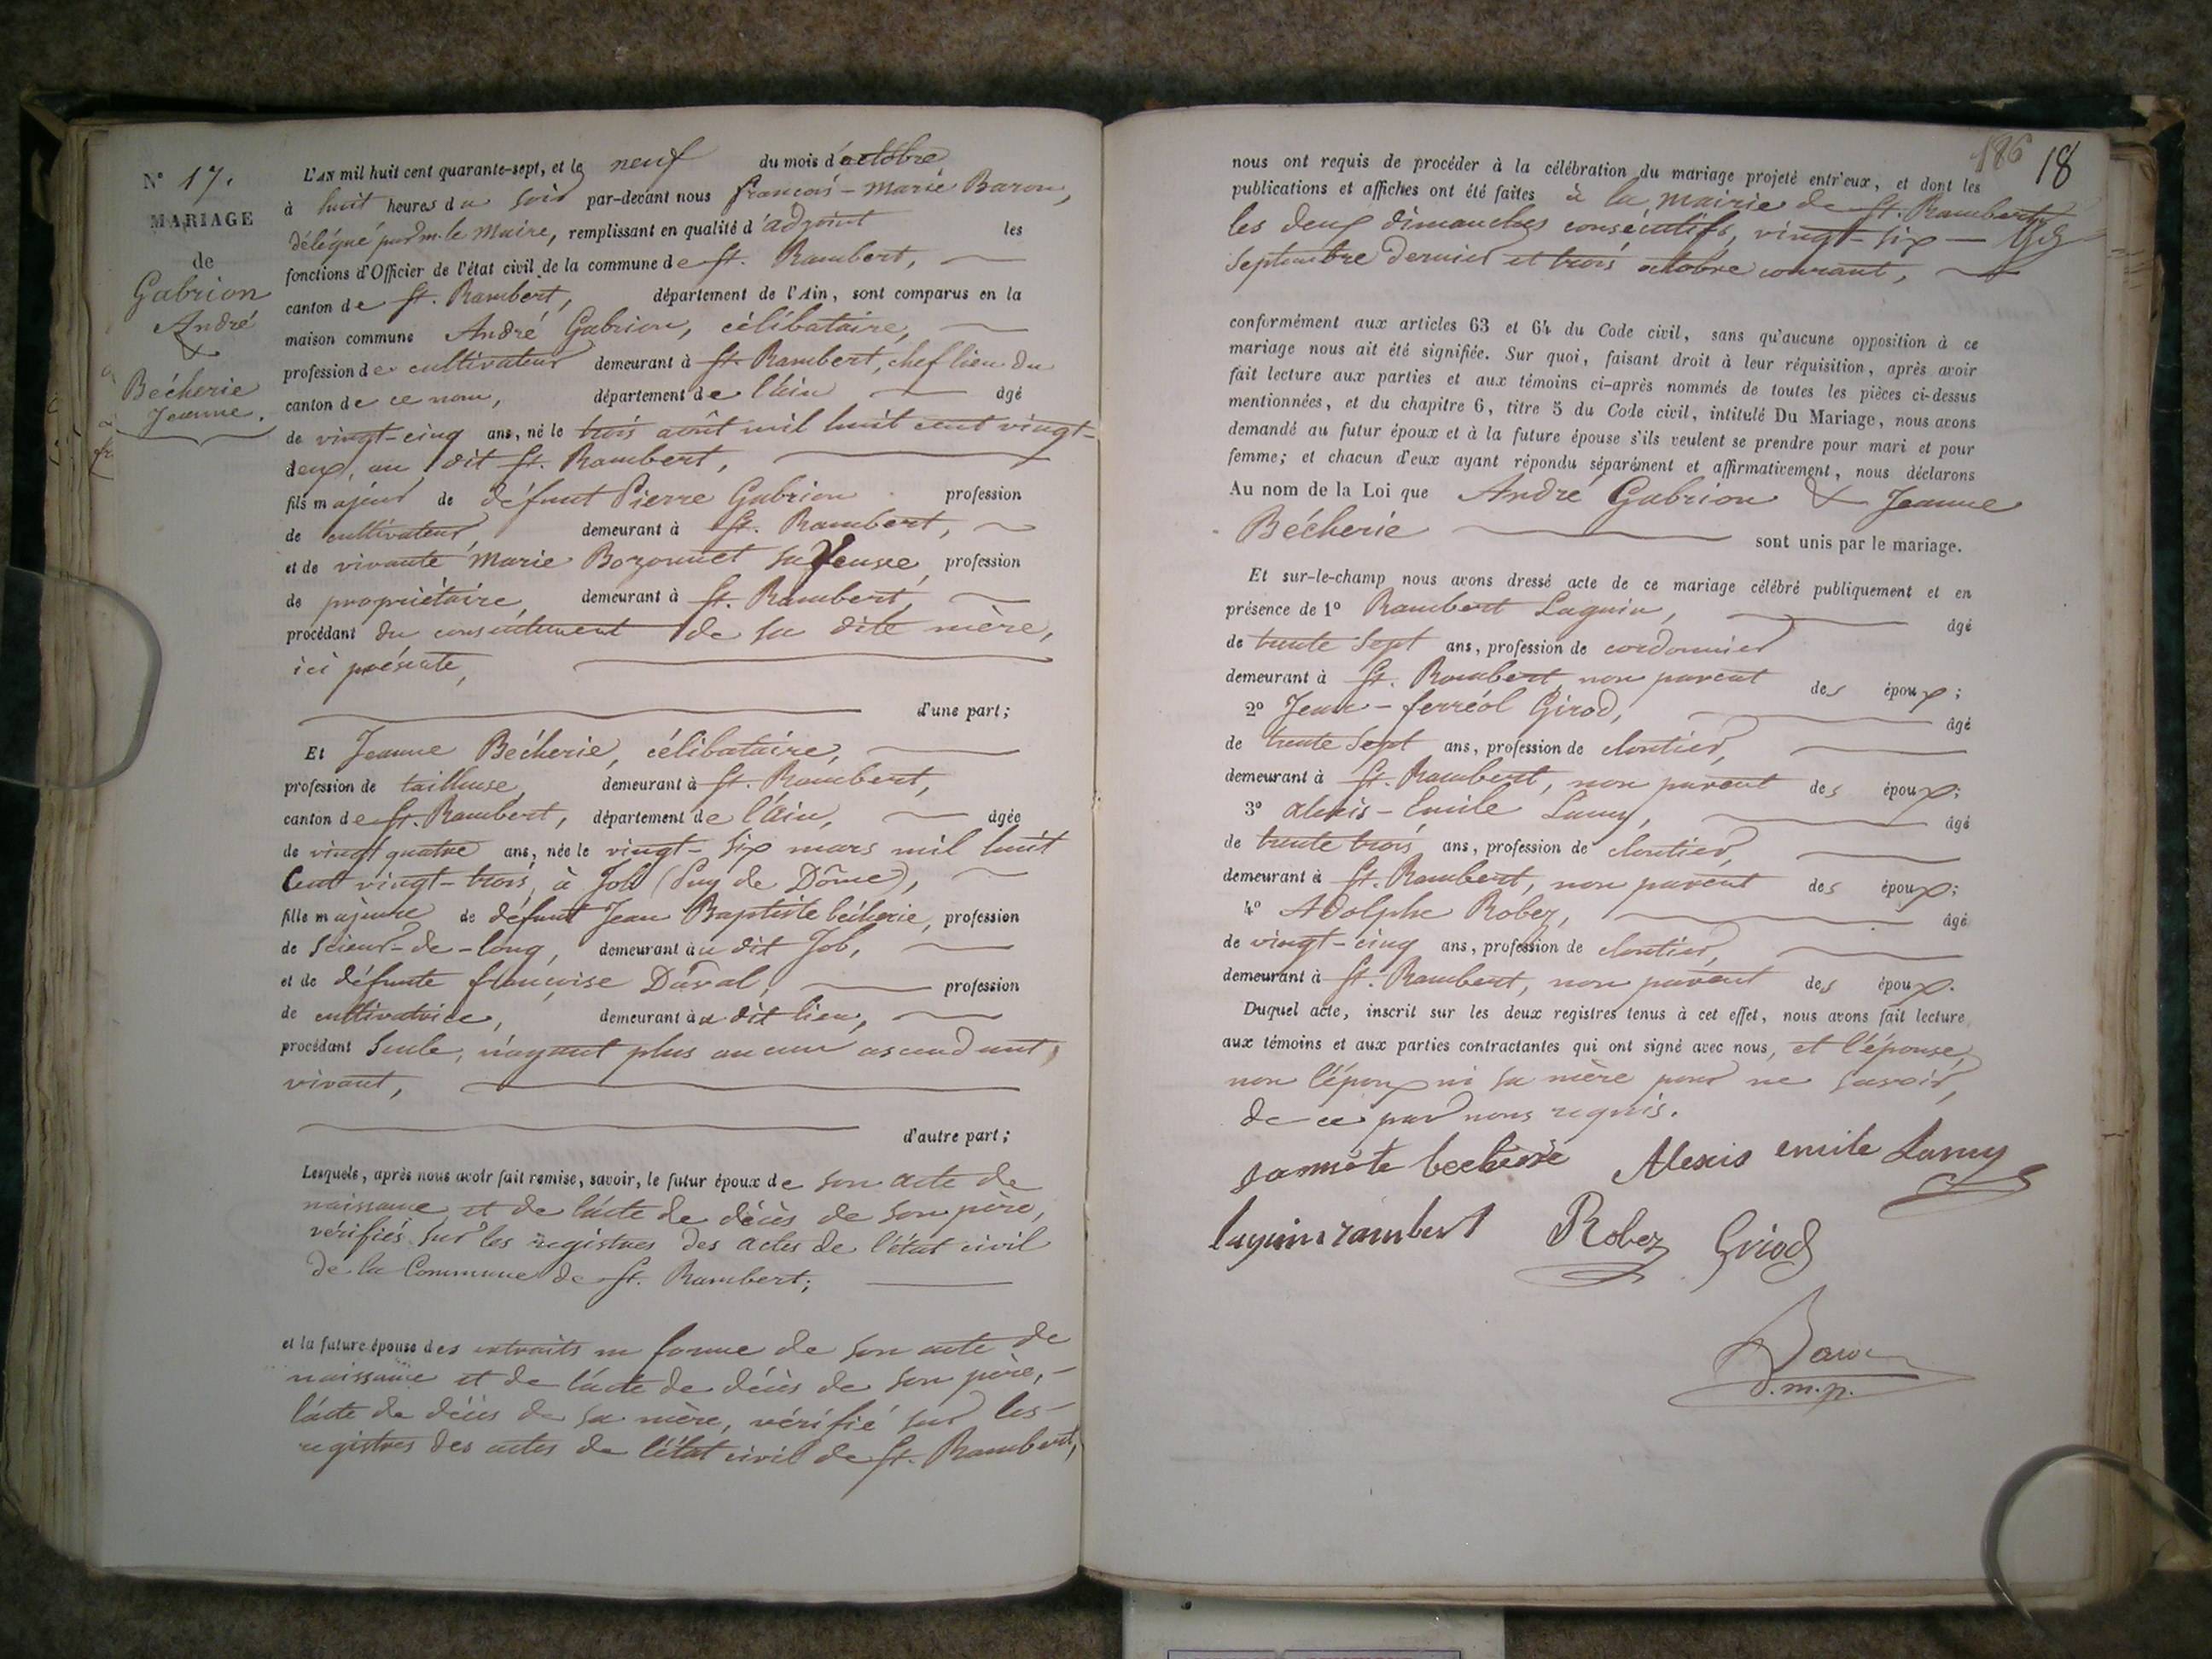 N° 17.
MARIAGE
de
Gabrion
André
&
Bécherie
Jeanne.
L'AN mil huit cent quarante-sept, et le neuf du mois d'octobre
à huit heures du soir par-devant nous françois-marie Baron,
délégué par m. le Maire, remplissant en qualité d'adjoint les
fonctions d'Officier de l'état civil de la commune de St. Rambert,
canton de St. Rambert, département de l'Ain, sont comparus en la
maison commune André Gabrion, célibataire,
profession de cultivateur demeurant à St. Rambert, chef lieu du
canton de ce nom, département de l'ain âgé
de vingt-cinq ans, né le trois août mil huit cent vingt-
deux, au dit St. Rambert,
fils majeur de défunt Pierre Gabrion profession
de cultivateur, demeurant à St. Rambert,
et de vivante Marie Bozonnet sa Veuve, profession
de propriétaire, demeurant à St. Rambert,
procédant du consentement de sa dite mère,
ici présente,
d'une part;
Et Jeanne Bécherie, célibataire,
profession de tailleuse, demeurant à St. Rambert,
canton de St. Rambert, département de l'ain, âgée
de vingt quatre ans, née le vingt-six mars mil huit
Cent vingt-trois, à Job (Puy de Dôme),
fille majeure de défunt Jean Baptiste bécherie, profession
de scieur-de-long, demeurant au dit Job,
et de défunte françoise Daval, profession
de cultivatrice, demeurant au dit lieu,
procédant seule, n'ayant plus aucun ascendant,
vivant,
d'autre part;
Lesquels, après nous avoir fait remise, savoir, le futur époux de son acte de
naissance et de l'acte de décès de son père,
vérifiés sur les registres des actes de l'état civil
de la Commune de St. Rambert;
et la future épouse des extraits en forme de son acte de
naissance et de l'acte de décès de son père,-
l'acte de décès de sa mère, vérifié sur les-
registres des actes de l'état civil de St. Rambert,
186 18
nous ont requis de procéder à la célébration du mariage projeté entr'eux, et dont les
publications et affiches ont été faites à la mairie de St. Rambert,
les deux dimanches consécutifs, vingt-six -
septembre dernier et trois octobre courant,
conformément aux articles 63 et 64 du Code civil, sans qu'aucune opposition à ce
mariage nous ait été signifiée. Sur quoi, faisant droit à leur réquisition, après avoir
fait lecture aux parties et aux témoins ci-après nommés de toutes les pièces ci-dessus
mentionnées, et du chapitre 6, titre 5 du Code civil, intitulé Du Mariage, nous avons
demandé au futur époux et à la future épouse s'ils veulent se prendre pour mari et pour
femme; et chacun d'eux ayant répondu séparément et affirmativement, nous déclarons
Au nom de la Loi que André Gabrion & Jeanne
Bécherie sont unis par le mariage.
Et sur-le-champ nous avons dressé acte de ce mariage célébré publiquement et en
présence de 1° Rambert Laguin, âgé
de trente sept ans, profession de cordonnier
demeurant à St. Rambert, non parent des époux;
2° Jean-ferréol Girod, âgé
de trente sept ans, profession de cloutier,
demeurant à St. Rambert, non parent des époux;
3° alexis-Emile Lamy, âgé
de trente trois ans, profession de cloutier,
demeurant à St. Rambert, non parent des époux;
4° Adolphe Robez, âgé
de vingt-cinq ans, profession de cloutier,
demeurant à St. Rambert, non parent des époux.
Duquel acte, inscrit sur les deux registres tenus à cet effet, nous avons fait lecture
aux témoins et aux parties contractantes qui ont signé avec nous, et l'épouse,
non l'époux ni sa mère pour ne savoir,
de ce par nous requis.
becherie Alexis emile Lamy
laguin rambert Robez Girod
Baron
d.m.p.